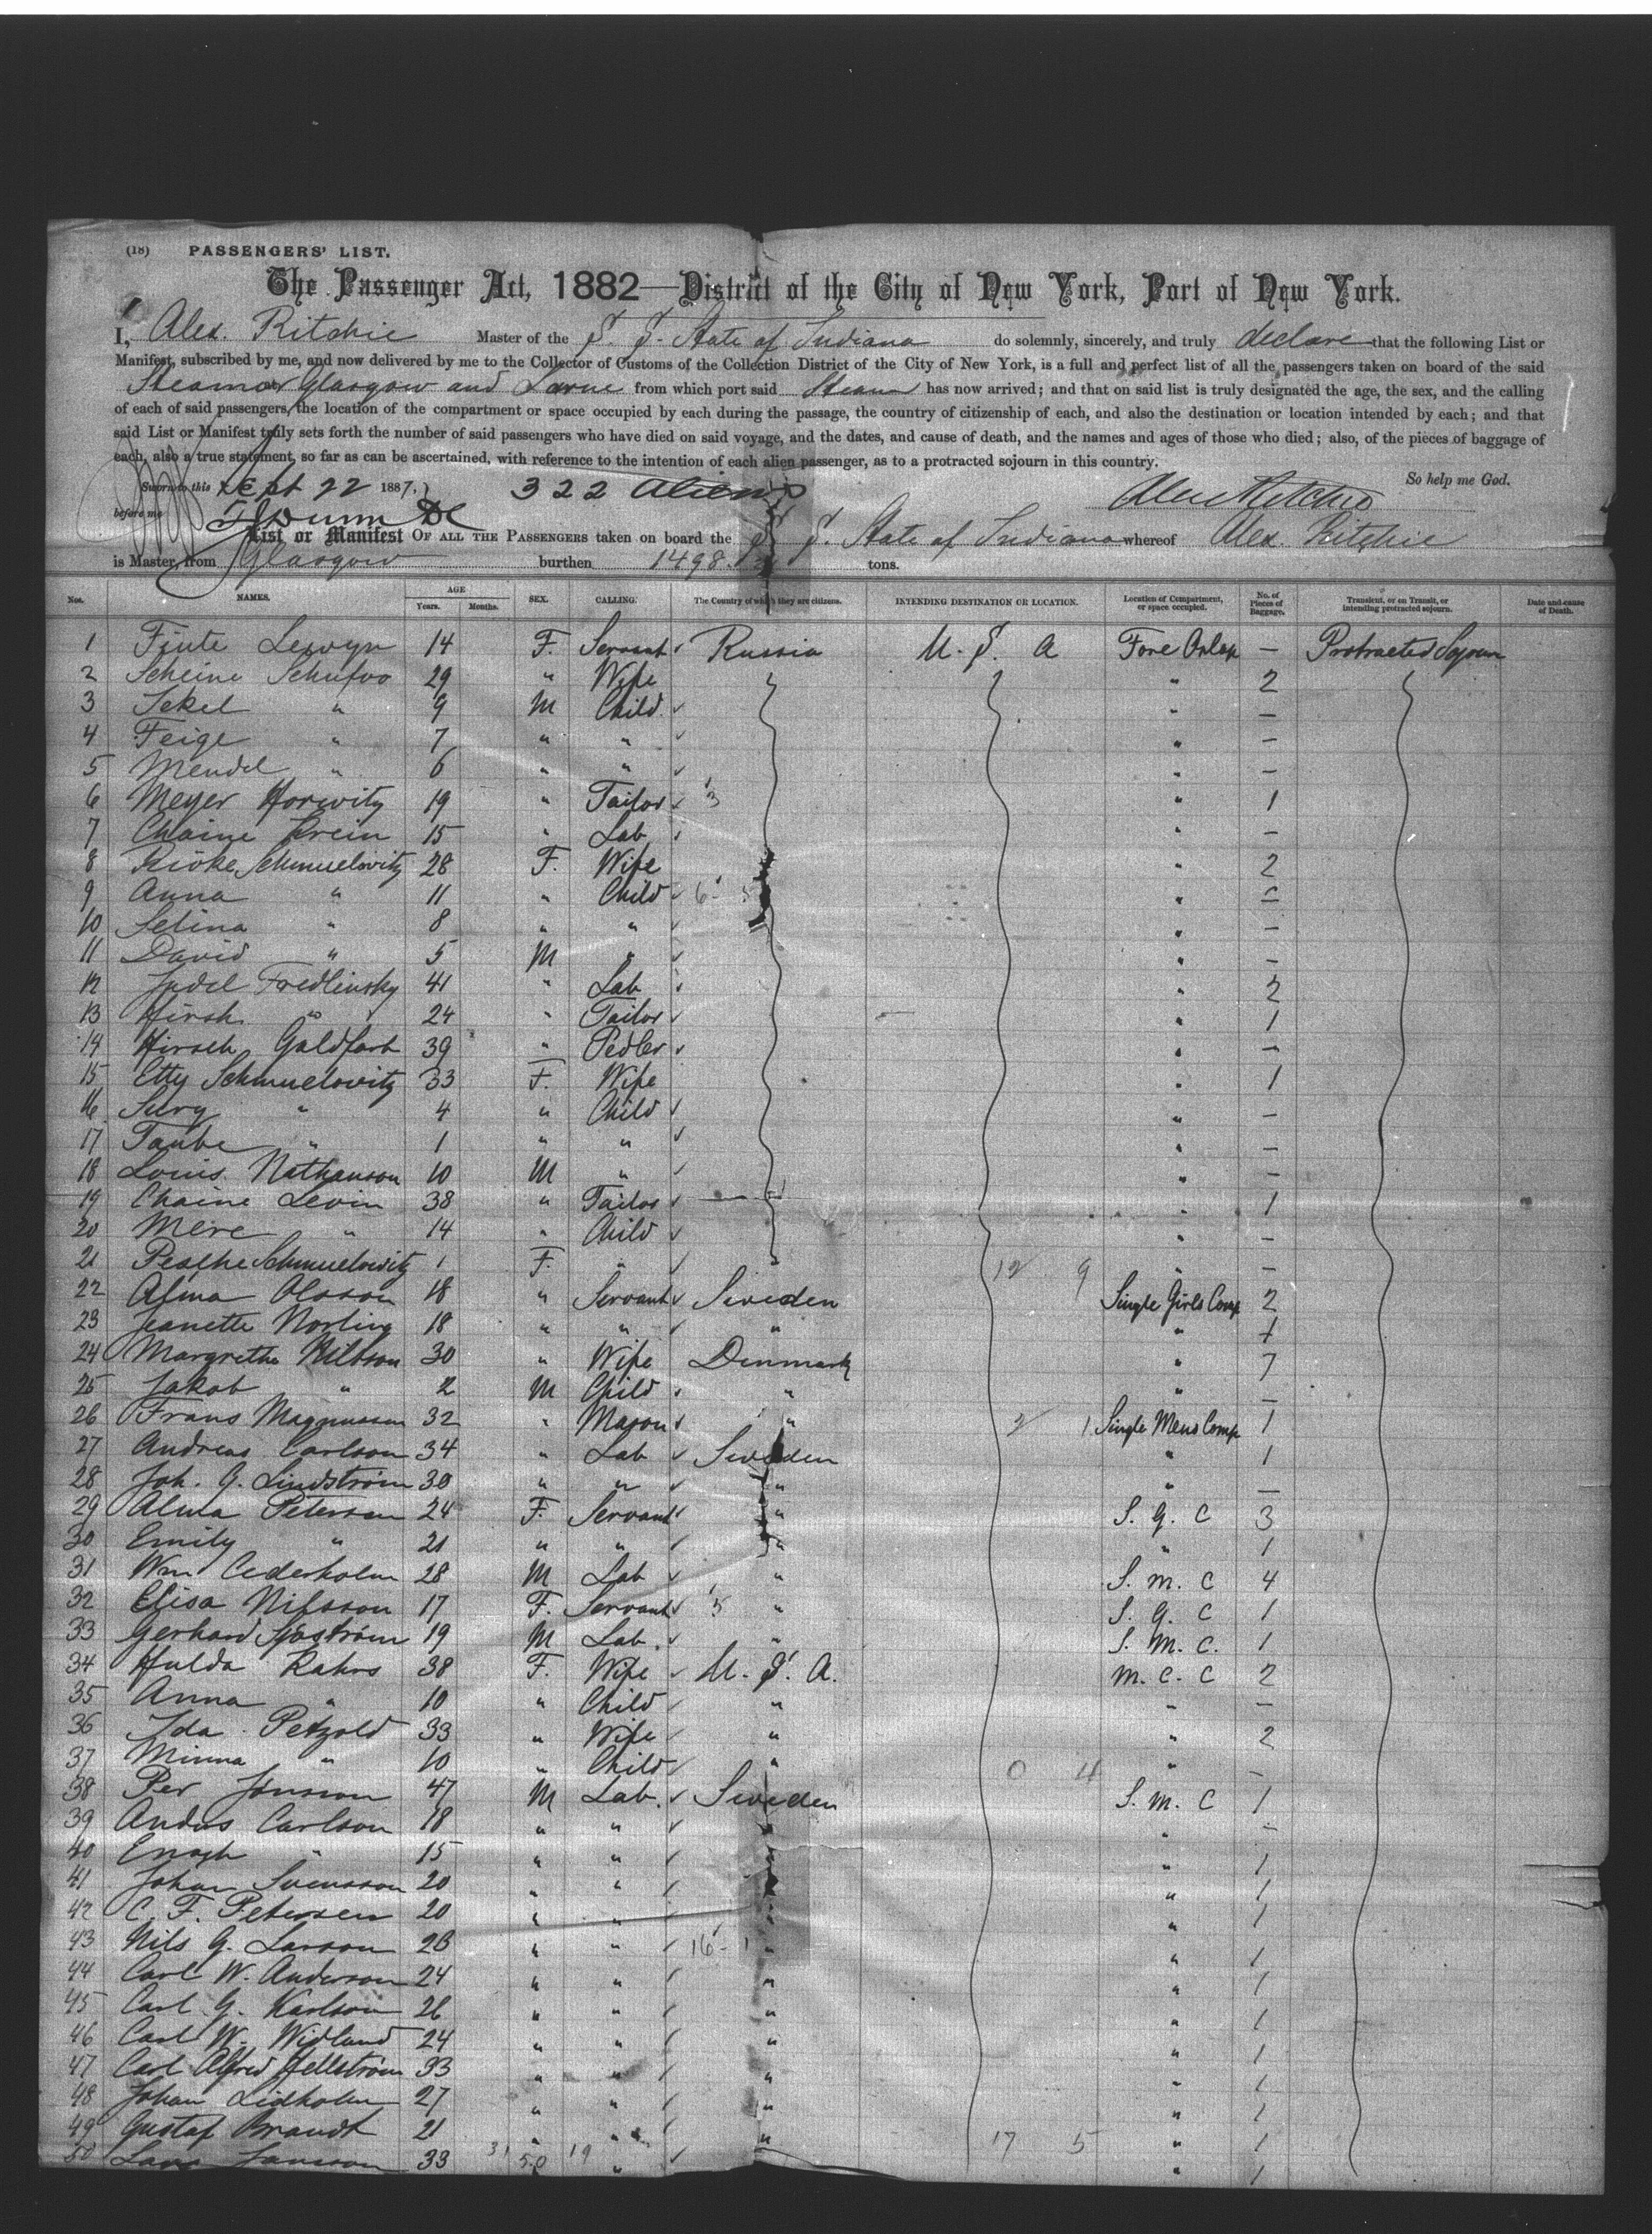 (18) PASSENGERS' LIST.
The Passenger Act, 1882—District of the City of New York, Port of New York.
I, Alex. Ritchie Master of the S. S. State of Indiana do solemnly, sincerely, and truly declare that the following List or
Manifest, subscribed by me, and now delivered by me to the Collector of Customs of the Collection District of the City of New York, is a full and perfect list of all the passengers taken on board of the said
Steamer Glasgow and Larne from which port said Steamer has now arrived; and that on said list is truly designated the age, the sex, and the calling
of each of said passengers, the location of the compartment or space occupied by each during the passage, the country of citizenship of each, and also the destination or location intended by each; and that
said List or Manifest truly sets forth the number of said passengers who have died on said voyage, and the dates, and cause of death, and the names and ages of those who died; also, of the pieces of baggage of
each, also a true statement, so far as can be ascertained, with reference to the intention of each alien passenger, as to a protracted sojourn in this country.
Sworn to this Sept 22 1887. 322 Aliens So help me God.
before me Alex Ritchie
List or Manifest OF ALL THE PASSENGERS taken on board the S. S. State of Indiana whereof Alex. Ritchie
is Master, from Glasgow burthen 1498 tons.
Nos. NAMES. AGE Years. Months. SEX. CALLING. The Country of which they are citizens. INTENDING DESTINATION OR LOCATION. Location of Compartment, or space occupied. No. of Pieces of Baggage. Transient, or on Transit, or intending protracted sojourn. Date and cause of Death.
1 14 F. Servant Russia U. S. A Fore Orlop — Protracted Sojourn
2 Scheine 29 " Wife " 2
3 " 9 M Child " —
4 Feige " 7 " " " —
5 Mendel " 6 " " " —
6 Meyer Horwitz 19 " Tailor " 1
7 Chaine 15 " Lab " —
8 Schmuelovitz 28 F. Wife " 2
9 Anna " 11 " Child " —
10 Selina " 8 " " " —
11 David " 5 M " " —
12 Judel Fredlinsky 41 " Lab " 2
13 Hirsh " 24 " Tailor " 1
14 Hirsch Goldfarb 39 " Pedler " —
15 Etty Schmuelovitz 33 F. Wife " 1
16 " 4 " Child " —
17 Taube " 1 " " " —
18 Louis Nathanson 10 M " " —
19 Chaine Levin 38 " Tailor " 1
20 Mere " 14 " Child " —
21 Pesche Schmuelovitz 1 F. " " —
12 9
22 Alma Olsson 18 " Servant Sweden Single Girls Comp 2
23 Jeanette Norling 18 " " " " 1
24 Margrethe Nilsson 30 " Wife Denmark " 7
25 Jakob " 2 M Child " " —
26 Frans Magnusson 32 " Mason " 2 1 Single Mens Comp 1
27 Andreas Carlson 34 " Lab Sweden " 1
28 Joh. G. Lindström 30 " " " " —
29 Alma Peterson 24 F. Servant " S. G. C 3
30 Emily " 21 " " " " 1
31 Wm Cederholm 28 M Lab " S. M. C 4
32 Elisa Nilsson 17 F. Servant " S. G. C 1
33 Gerhard Sjöström 19 M Lab. " S. M. C. 1
34 Hulda Rahrs 38 F. Wife U. S. A. M. C. C 2
35 Anna " 10 " Child " " —
36 Ida Petzold 33 " Wife " " 2
37 Minna " 10 " Child " 0 4 " —
38 Per Jönsson 47 M Lab. Sweden S. M. C 1
39 Andus Carlson 18 " " " " —
40 Enoch " 15 " " " " 1
41 Johan Svensson 20 " " " " 1
42 C. F. Petersen 20 " " " " 1
43 Nils G. Larson 26 " " " " 1
44 Carl W. Anderson 24 " " " " 1
45 Carl G. Karlson 26 " " " " 1
46 Carl W. Widlund 24 " " " " 1
47 Carl Alfred Hellström 33 " " " " 1
48 Johan Lidholm 27 " " " " 1
49 Gustaf Brandt 21 " " " 17 5 " 1
50 Lars Jansson 33 " " " 1